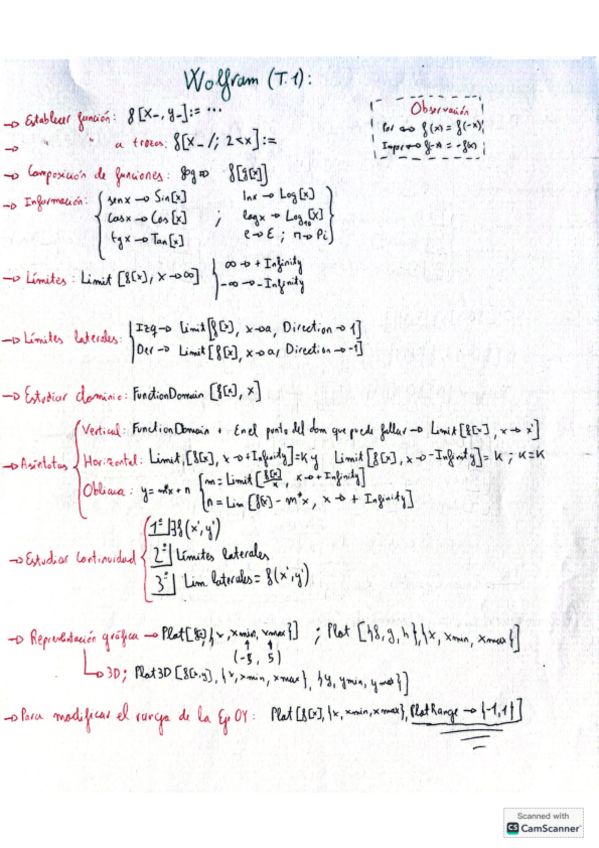 Wolfram (T.1):
Observación
Par ⇔ f(x) = f(-x);
Impar ⇔ f(-x) = -f(x);
→ Establecer función: f[x_, y_]:= ...
→ " " a trozos: f[x_/; 2<x]:=
→ Composición de funciones: fog ⇒ f[g[x]]
→ Información: { senx → Sin[x] lnx → Log[x]
cosx → Cos[x] ; logx → Log10[x]
tgx → Tan[x] e → E ; π → Pi }
→ Límites: Limit [f[x], x → ∞] { ∞ → + Infinity
-∞ → - Infinity
→ Límites laterales: { Izq → Limit [f[x], x→a, Direction → 1]
Der → Limit [f[x], x→a, Direction → -1]
→ Estudiar dominio: FunctionDomain [f[x], x]
→ Asíntotas { Vertical: FunctionDomain + En el punto del dom que puede fallar → Limit[f[x], x → x']
Horizontal: Limit, [f[x], x → +Infinity] = K y Limit [f[x], x → -Infinity] = K ; K=K
Oblicua: y = m*x + n { m = Limit [f[x]/x, x → + Infinity]
n = Lim [f[x] - m*x, x → + Infinity]
→ Estudiar continuidad { 1º ∃f(x',y')
2º Límites laterales
3º Lim laterales = f(x',y')
→ Representación gráfica → Plot[f[x], {x, xmin, xmax}] ; Plot [{f, g, h}, {x, xmin, xmax}]
(-5, 5)
↳ 3D; Plot3D [f[x,y], {x, xmin, xmax}, {y, ymin, ymax}]
→ Para modificar el rango de la Eje OY: Plot [f[x], {x, xmin, xmax}, PlotRange → {-1,1}]
Scanned with
CS CamScanner